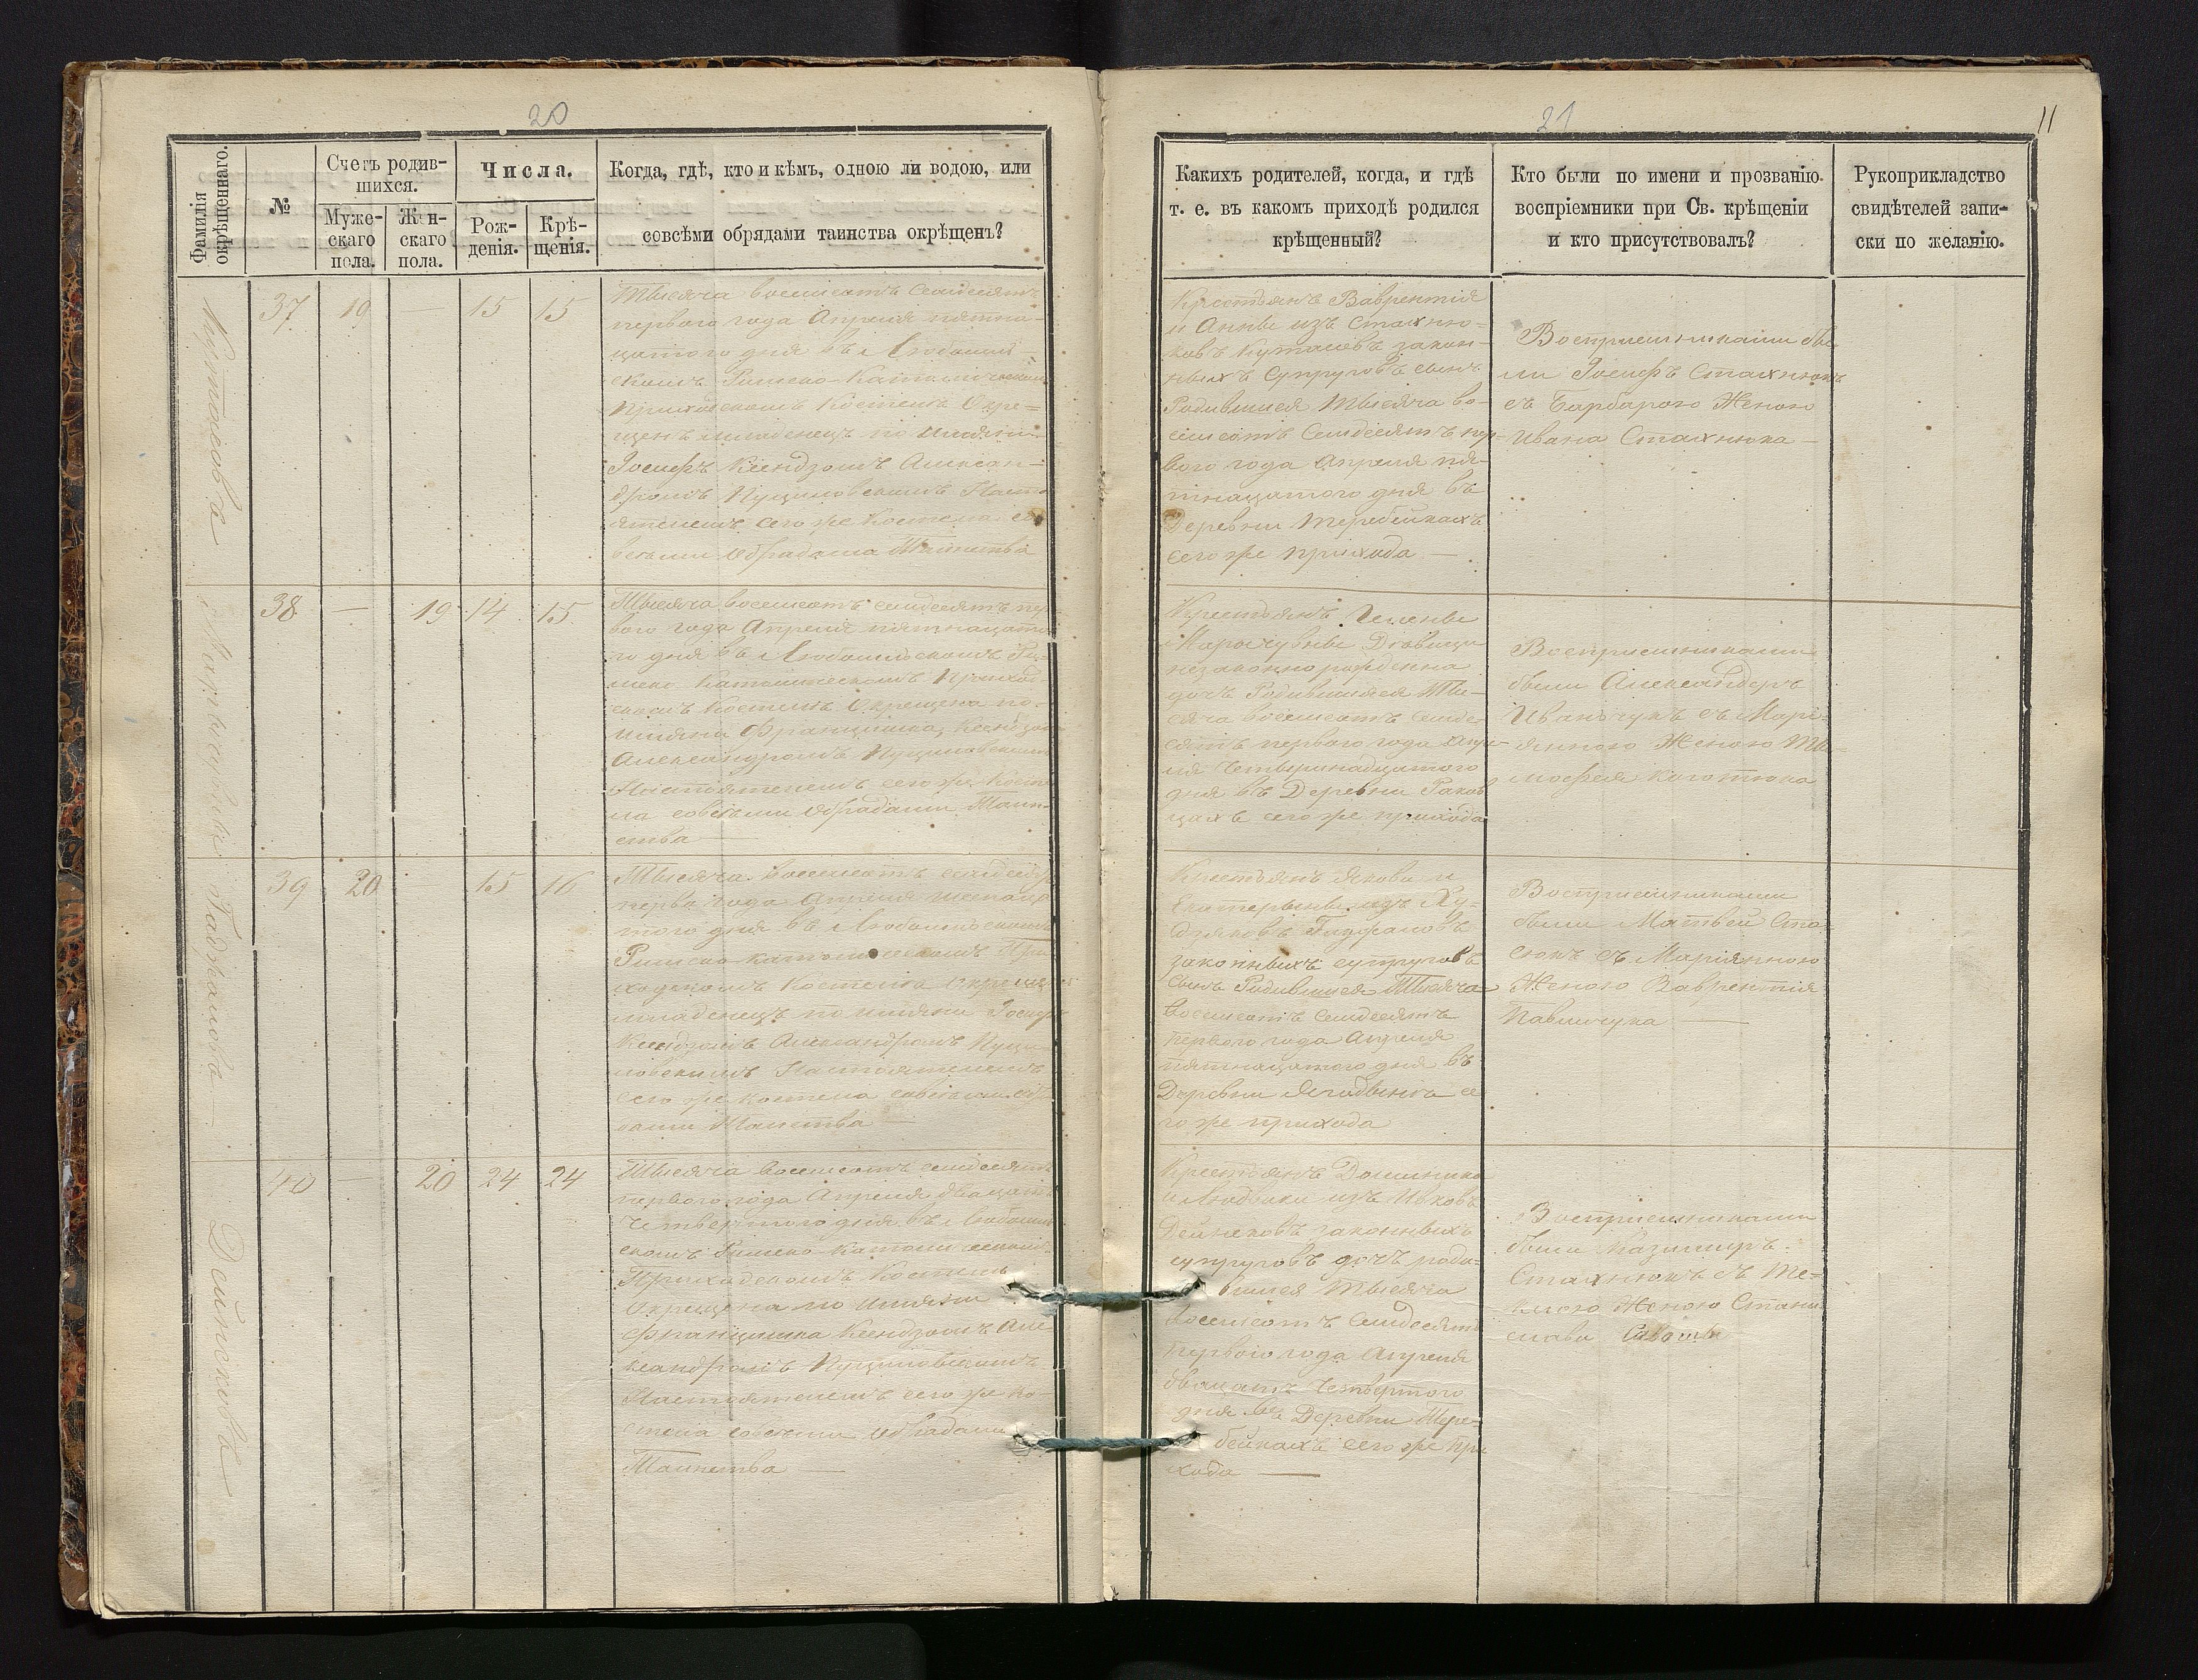 20
Фамилія окрѣщеннаго.
№
Счетъ родив-
шихся.
Муже-
скаго
пола.
Жен-
скаго
пола.
Числа.
Рож-
денія.
Крѣ-
щенія.
Когда, гдѣ, кто и кѣмъ, одною ли водою, или
совсѣми обрядами таинства окрѣщенъ?
37 19 — 15 15
Тысяча восемсотъ Семдесятъ
первого года Апреля пятна-
цатого дня въ Любомль-
скомъ Римско-Католическомъ
Приходскомъ Костелѣ Окре=
щенъ младенецъ по имяни
Іосифъ Ксендзомъ Алексан=
дромъ Пуциловскимъ Насто
ятелемъ сего же Костела со
всеми обрадами Таинства
38 — 19 14 15
Тысяча восемсотъ семдесятъ пер-
вого года Апреля пятнацато
го дня въ Любомльскомъ Ри-
мско Католическомъ Приход-
скомъ Костелѣ Окрещена по
имяни Францишка, Ксендзом
Александромъ Пуциловскимъ
Настоятелемъ сего же Косте
ла совсеми обрадами Таин-
ства
39 20 — 15 16
Тысяча восемсотъ семдесятъ
перв. года Апреля шеснаца
того дня въ Любомльскомъ
Римско-католическомъ При
ходскомъ Костелѣ окрещен
младенецъ по имяни Іосифъ
Ксендзомъ Александромъ Пуци
ловскимъ Настоятелемъ
сего же костела совсеми обра
дами Таинства —
Гадзалова —
40 — 20 24 24
Тысяча восемсотъ семдесятъ
первого года Апреля двацать
четвертого дня въ Любомль
скомъ Римско-Католическомъ
Приходскомъ Костелѣ
Окрещена по имяни
Францишка Ксендзомъ Але
ксандромъ Пуциловскимъ
Настоятелемъ сего же ко-
стела совсеми обрадами
Таинства —
Дейнекова
21
11
Какихъ родителей, когда, и гдѣ
т. е. въ какомъ приходѣ родился
крѣщенный?
Кто были по имени и прозванію
воспріемники при Св. крѣщеніи
и кто присутствовалъ?
Рукоприкладство
свидѣтелей запи-
ски по желанію.
Крестьянъ Ваврентія
и Анны изъ Стахню-
ковъ закон-
ныхъ Супруговъ сынъ
Родившися Тысяча во-
семсотъ Семдесятъ пер-
вого года Апреля пя-
тнацатого дня въ
Деревни Теребейкахъ
сего же прихода —
Восприемниками бы
ли Іосифъ Стахнюкъ
съ Барбарою Женою
Ивана Стахнюка —
Крестьянъ
Дѣвицы
незаконно рожденна
дочъ Родившаяся Ты-
сяча восемсотъ семде-
сятъ первого года Апре-
ля четвернадцатого
дня въ Деревни
цахъ сего же прихода
Восприемниками
были Александеръ
Иванчукъ съ Марі-
янною Женою Ти-
мофея
Крестьянъ Якова и
Екатерыны изъ
законныхъ супруговъ
сынъ Родившися Тысяча
восемсотъ семдесятъ
первого года Апреля
пятнацатого дня въ
Деревни Ягодынѣ се
го же прихода
Восприемниками
были Матвей Ста
сюкъ съ Маріянною
Женою Ваврентія
Павлючука —
Крестьянъ Доминика
и Людвики изъ
Дейнековъ законныхъ
супруговъ дочъ роди-
вшися Тысяча
восемсотъ Семдесятъ
первого года Апреля
двацатъ четвертого
дня въ Деревни Тере-
бейкахъ сего же при
хода —
Восприемниками
были Казимиръ
Стахнюкъ съ Те-
клею Женою Стани
слава